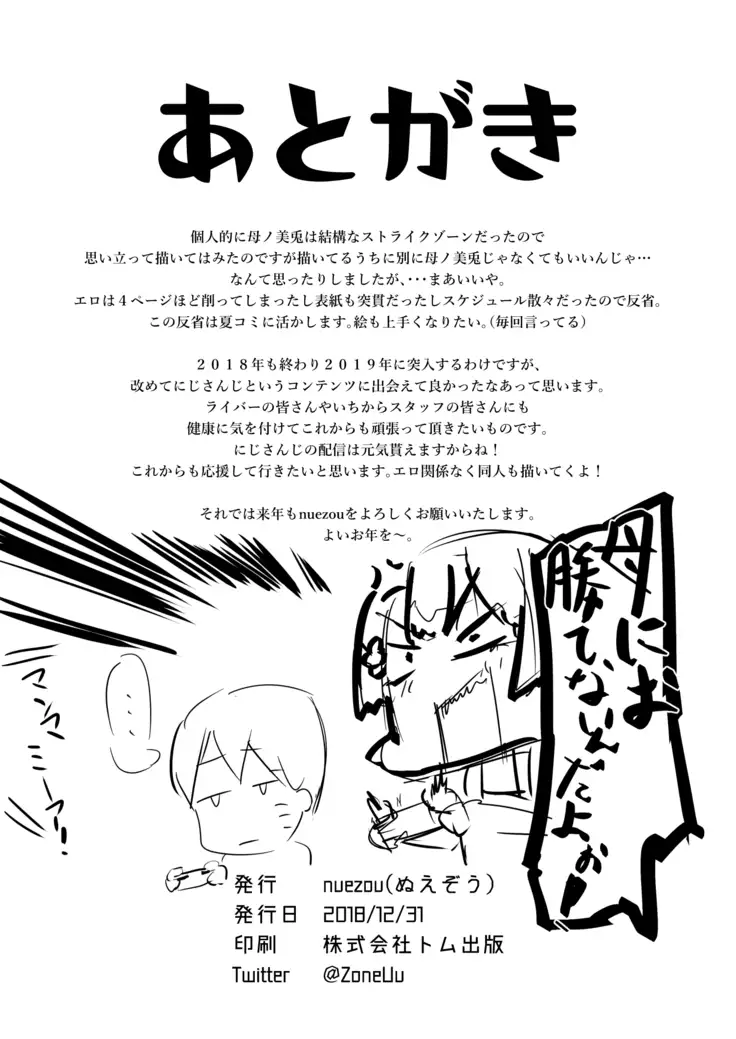 あとがき
個人的に母ノ美兎は結構なストライクゾーンだったので
思い立って描いてはみたのですが描いてるうちに別に母ノ美兎じゃなくてもいいんじゃ…
なんて思ったりしましたが、・・・まあいいや。
エロは４ページほど削ってしまったし表紙も突貫だったしスケジュール散々だったので反省。
この反省は夏コミに活かします。絵も上手くなりたい。（毎回言ってる）
２０１８年も終わり２０１９年に突入するわけですが、
改めてにじさんじというコンテンツに出会えて良かったなあって思います。
ライバーの皆さんやいちからスタッフの皆さんにも
健康に気を付けてこれからも頑張って頂きたいものです。
にじさんじの配信は元気貰えますからね！
これからも応援して行きたいと思います。エロ関係なく同人も描いてくよ！
それでは来年もnuezouをよろしくお願いいたします。
よいお年を～。
母には
勝てないんだよぉ！
・・・
マンマ
ミーア！
発行 nuezou(ぬえぞう)
発行日 2018/12/31
印刷 株式会社トム出版
Twitter @ZoneUu